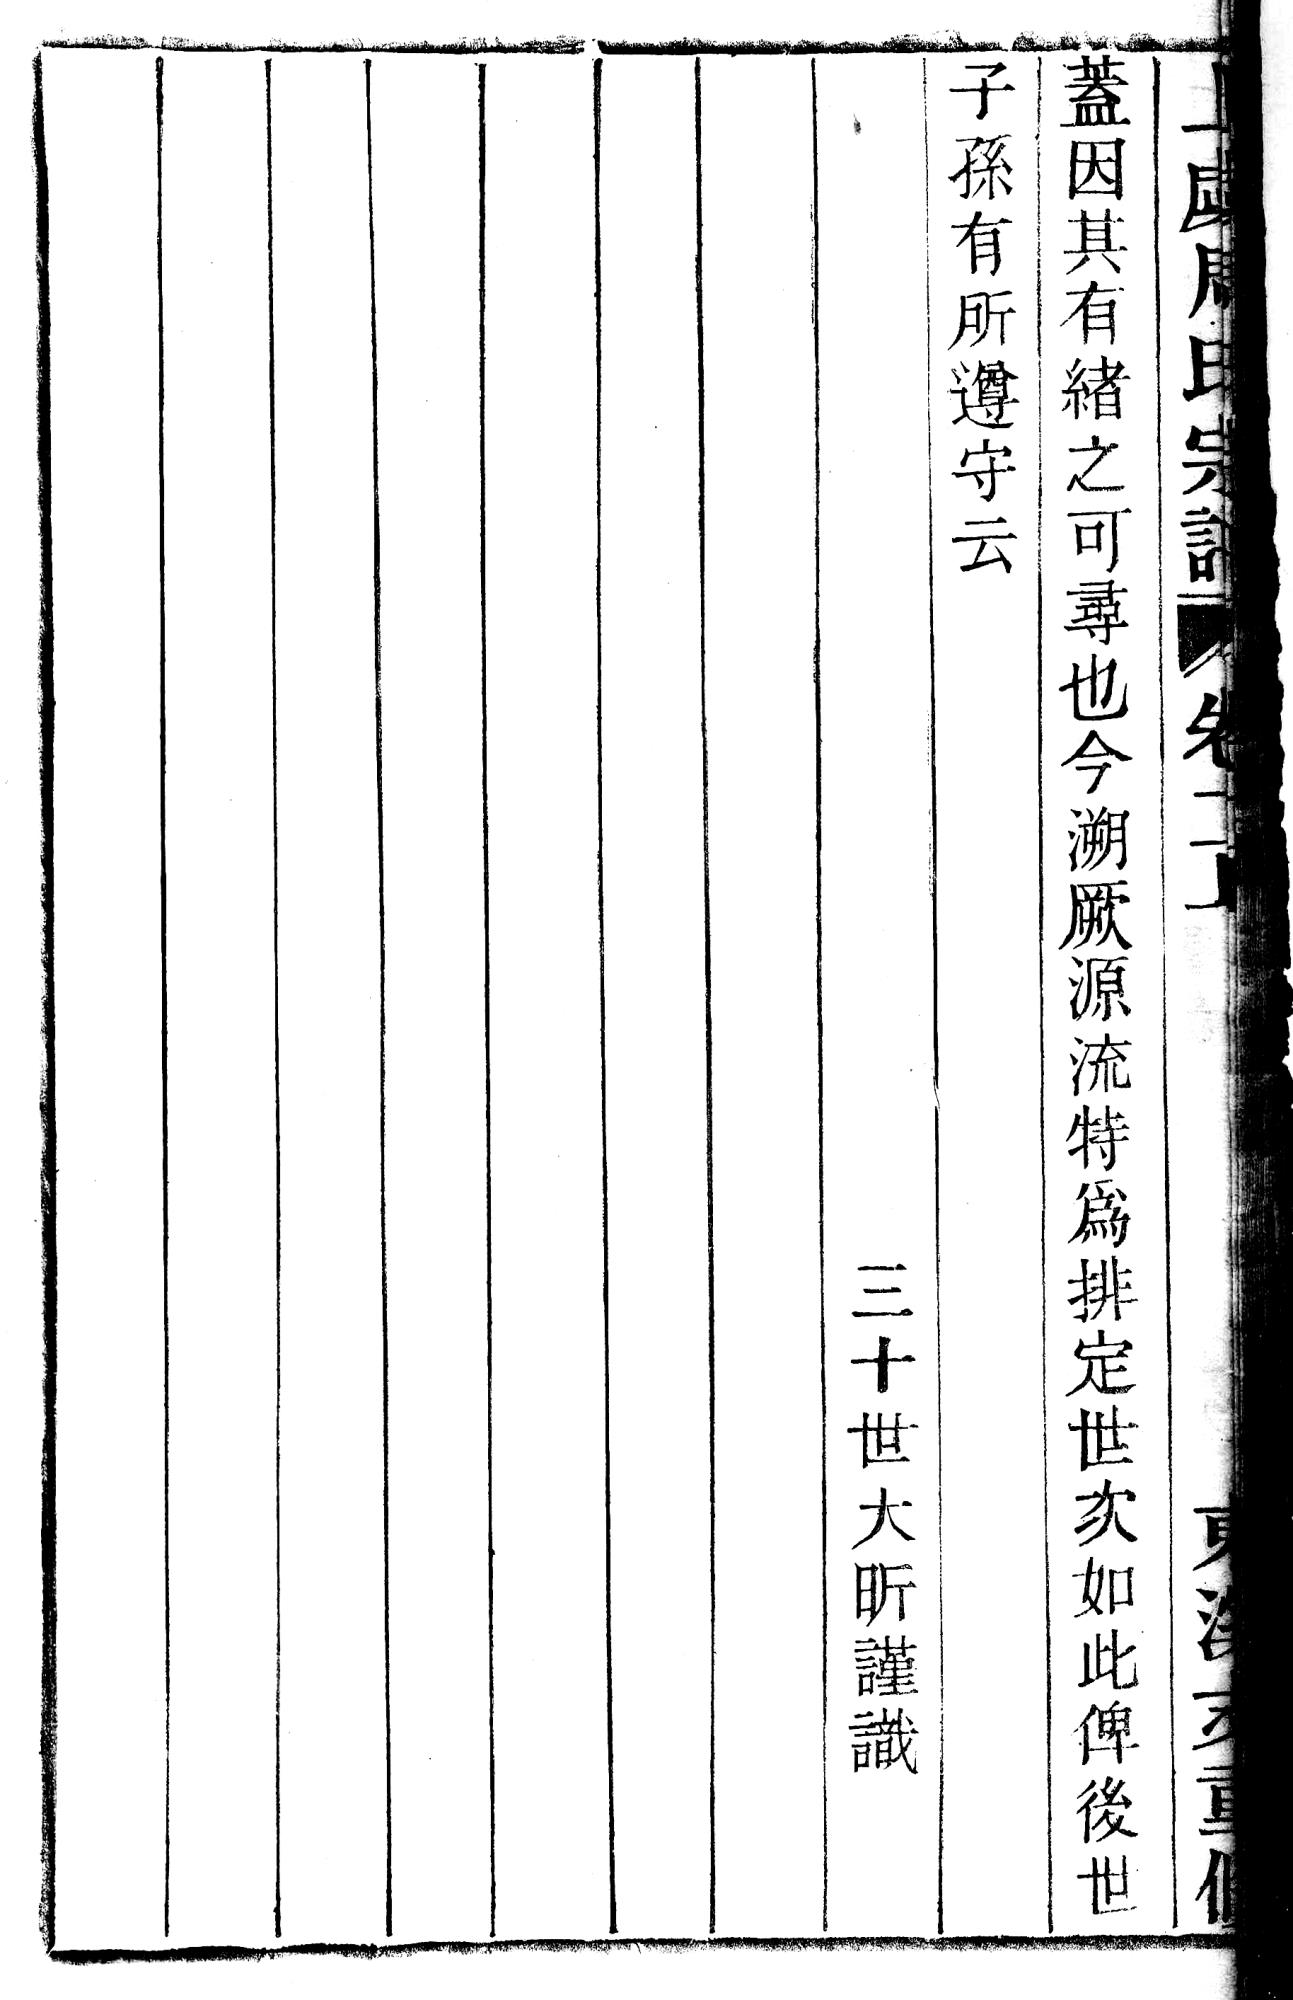 上虞周氏宗譜 卷二
重修
蓋因其有緒之可尋也今溯厥源流特爲排定世次如此俾後世
子孫有所遵守云
三十世大昕謹識